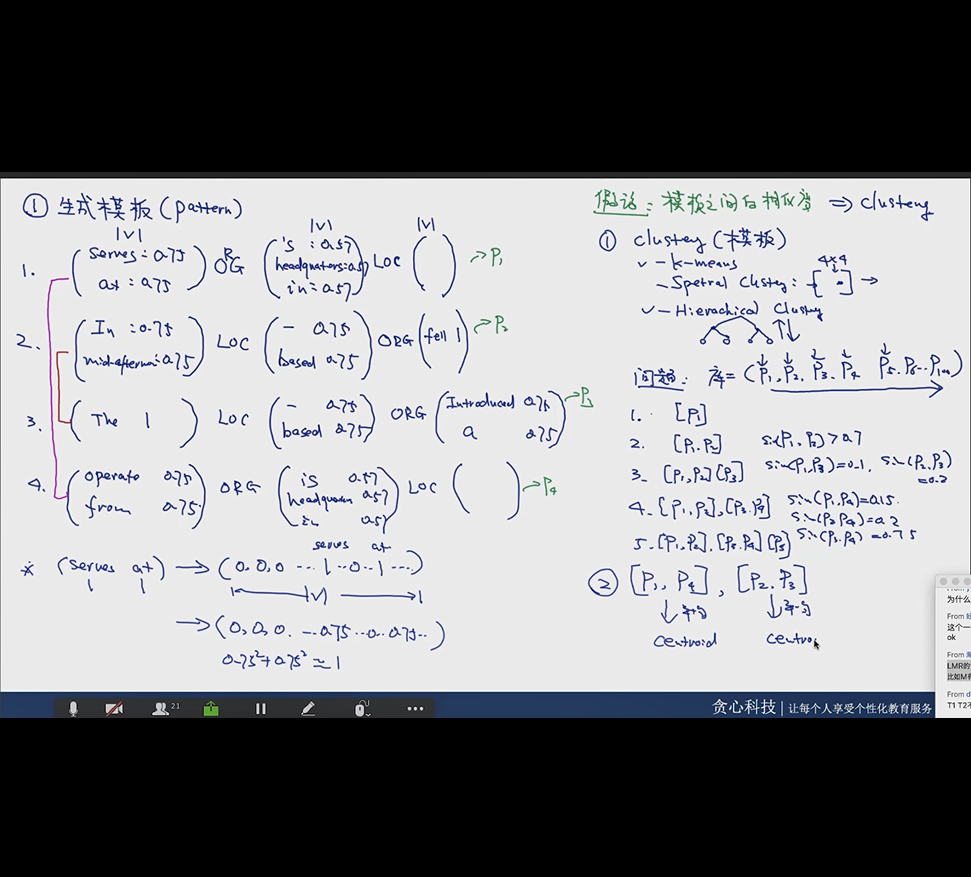 ① 生成模板 (pattern)
|V| |V| |V|
1. (serves : 0.75 at : 0.75) ORG (is : 0.57 headquaters : 0.57 in : 0.57) LOC ( ) → P₁
2. (In : 0.75 mid-afternoon : 0.75) LOC (- 0.75 based 0.75) ORG (fell 1) → P₂
3. (The 1) LOC (- 0.75 based 0.75) ORG (Introduced 0.75 a 0.75) → P₃
4. (operate 0.75 from 0.75) ORG (is 0.57 headquarters 0.57 in 0.57) LOC ( ) → P₄
serves at
* (serves at) → (0,0,0 ... 1 ..0..1 ...)
1 1 |V|
→ (0,0,0. ...0.75 ..0.. 0.75..)
0.75²+0.75² ≃ 1
假设: 模板之间的相似度 ⇒ clustering
① clustering (模板)
✓ - k-means
4×4
- Spetral Clusteng : → [ ] →
✓ - Hierachical Clusteng
问题: 库 = (P₁, P₂. P₃. P₄ P₅. P₆... P₁₀₀)
1. [P₁]
2. [P₁.P₂] sim(P₁, P₂) > 0.7
3. [P₁, P₂] [P₃] sim(P₁,P₃)=0.1. sim(P₂,P₃) =0.2
4. [P₁,P₂], [P₃.P₄] sim(P₁,P₄)=0.15.
sim(P₂,P₄)=0.2
sim(P₃,P₄) =0.75
5. [P₁,P₂], [P₃.P₄] [P₅]
② [P₁, P₄] , [P₂. P₃]
↓ 平均 ↓ 平均
centroid centro
为什么
From
这个一
ok
From
LMR的
比如M有
From d
T1 T2不
21
贪心科技 | 让每个人享受个性化教育服务